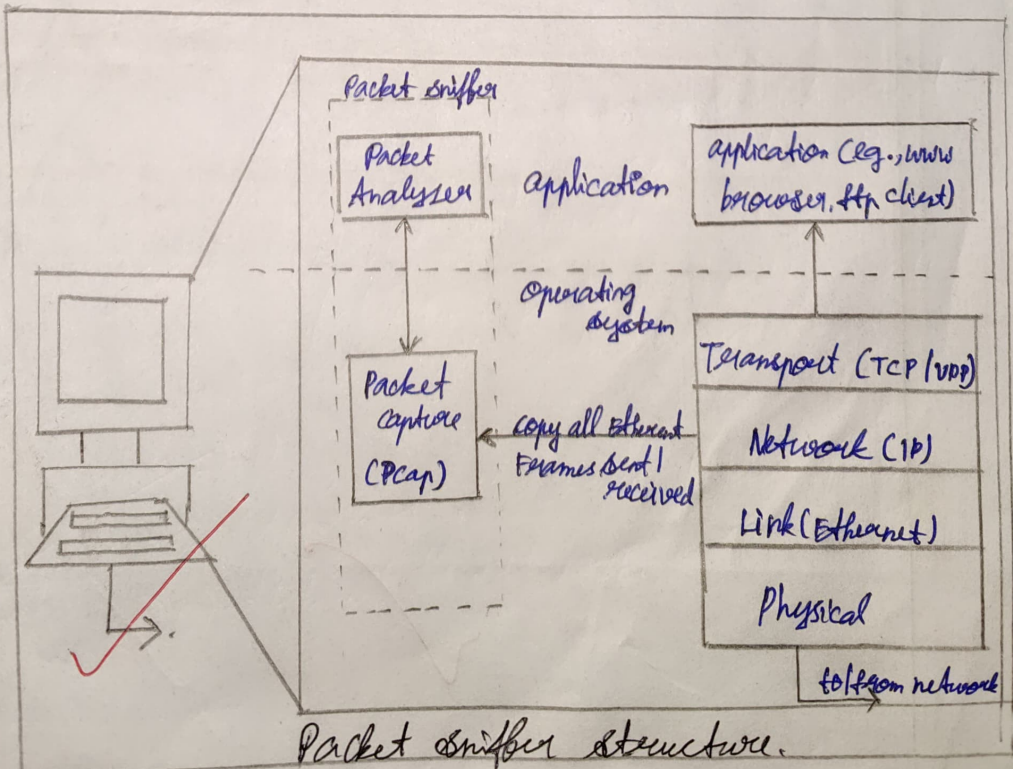 Packet sniffer
Packet
Analyzer
application
application (eg.,www
browser, ftp client)
Operating
system
Packet
capture
(Pcap)
copy all Ethernet
Frames sent/
received
Transport (TCP/UDP)
Network (IP)
Link (Ethernet)
Physical
to/from network
Packet sniffer structure.